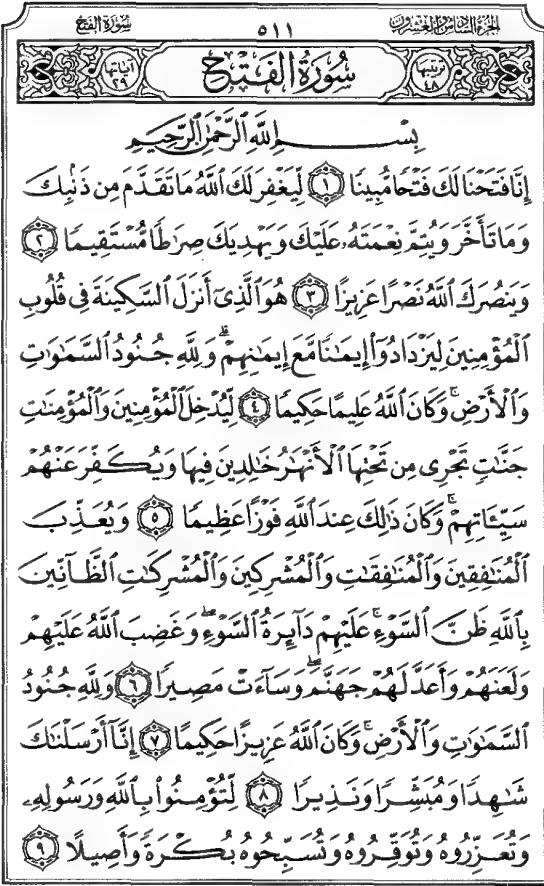 الجزء السادس والعشرون ٥١١ سورة الفتح
ترتيبها ٤٨ سُورَةُ الفَتْح آياتها ٢٩
بِسْمِ اللَّهِ الرَّحْمَٰنِ الرَّحِيمِ
إِنَّا فَتَحْنَا لَكَ فَتْحًا مُّبِينًا ١ لِّيَغْفِرَ لَكَ اللَّهُ مَا تَقَدَّمَ مِن ذَنۢبِكَ
وَمَا تَأَخَّرَ وَيُتِمَّ نِعْمَتَهُۥ عَلَيْكَ وَيَهْدِيَكَ صِرَٰطًا مُّسْتَقِيمًا ٢
وَيَنصُرَكَ اللَّهُ نَصْرًا عَزِيزًا ٣ هُوَ الَّذِىٓ أَنزَلَ السَّكِينَةَ فِى قُلُوبِ
الْمُؤْمِنِينَ لِيَزْدَادُوٓا۟ إِيمَٰنًا مَّعَ إِيمَٰنِهِمْ ۗ وَلِلَّهِ جُنُودُ السَّمَٰوَٰتِ
وَالْأَرْضِ ۚ وَكَانَ اللَّهُ عَلِيمًا حَكِيمًا ٤ لِّيُدْخِلَ الْمُؤْمِنِينَ وَالْمُؤْمِنَٰتِ
جَنَّٰتٍ تَجْرِى مِن تَحْتِهَا الْأَنْهَٰرُ خَٰلِدِينَ فِيهَا وَيُكَفِّرَ عَنْهُمْ
سَيِّـَٔاتِهِمْ ۚ وَكَانَ ذَٰلِكَ عِندَ اللَّهِ فَوْزًا عَظِيمًا ٥ وَيُعَذِّبَ
الْمُنَٰفِقِينَ وَالْمُنَٰفِقَٰتِ وَالْمُشْرِكِينَ وَالْمُشْرِكَٰتِ الظَّآنِّينَ
بِاللَّهِ ظَنَّ السَّوْءِ ۚ عَلَيْهِمْ دَآئِرَةُ السَّوْءِ ۖ وَغَضِبَ اللَّهُ عَلَيْهِمْ
وَلَعَنَهُمْ وَأَعَدَّ لَهُمْ جَهَنَّمَ ۖ وَسَآءَتْ مَصِيرًا ٦ وَلِلَّهِ جُنُودُ
السَّمَٰوَٰتِ وَالْأَرْضِ ۚ وَكَانَ اللَّهُ عَزِيزًا حَكِيمًا ٧ إِنَّآ أَرْسَلْنَٰكَ
شَٰهِدًا وَمُبَشِّرًا وَنَذِيرًا ٨ لِّتُؤْمِنُوا۟ بِاللَّهِ وَرَسُولِهِۦ
وَتُعَزِّرُوهُ وَتُوَقِّرُوهُ وَتُسَبِّحُوهُ بُكْرَةً وَأَصِيلًا ٩